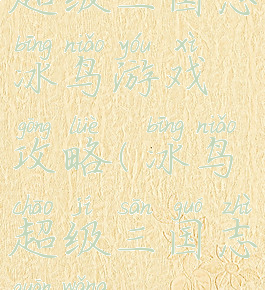 超级三国志
bīng niǎo yóu xì
冰鸟游戏
gōng lüè bīng niǎo
攻略(冰鸟
chāo jí sān guó zhì
超级三国志